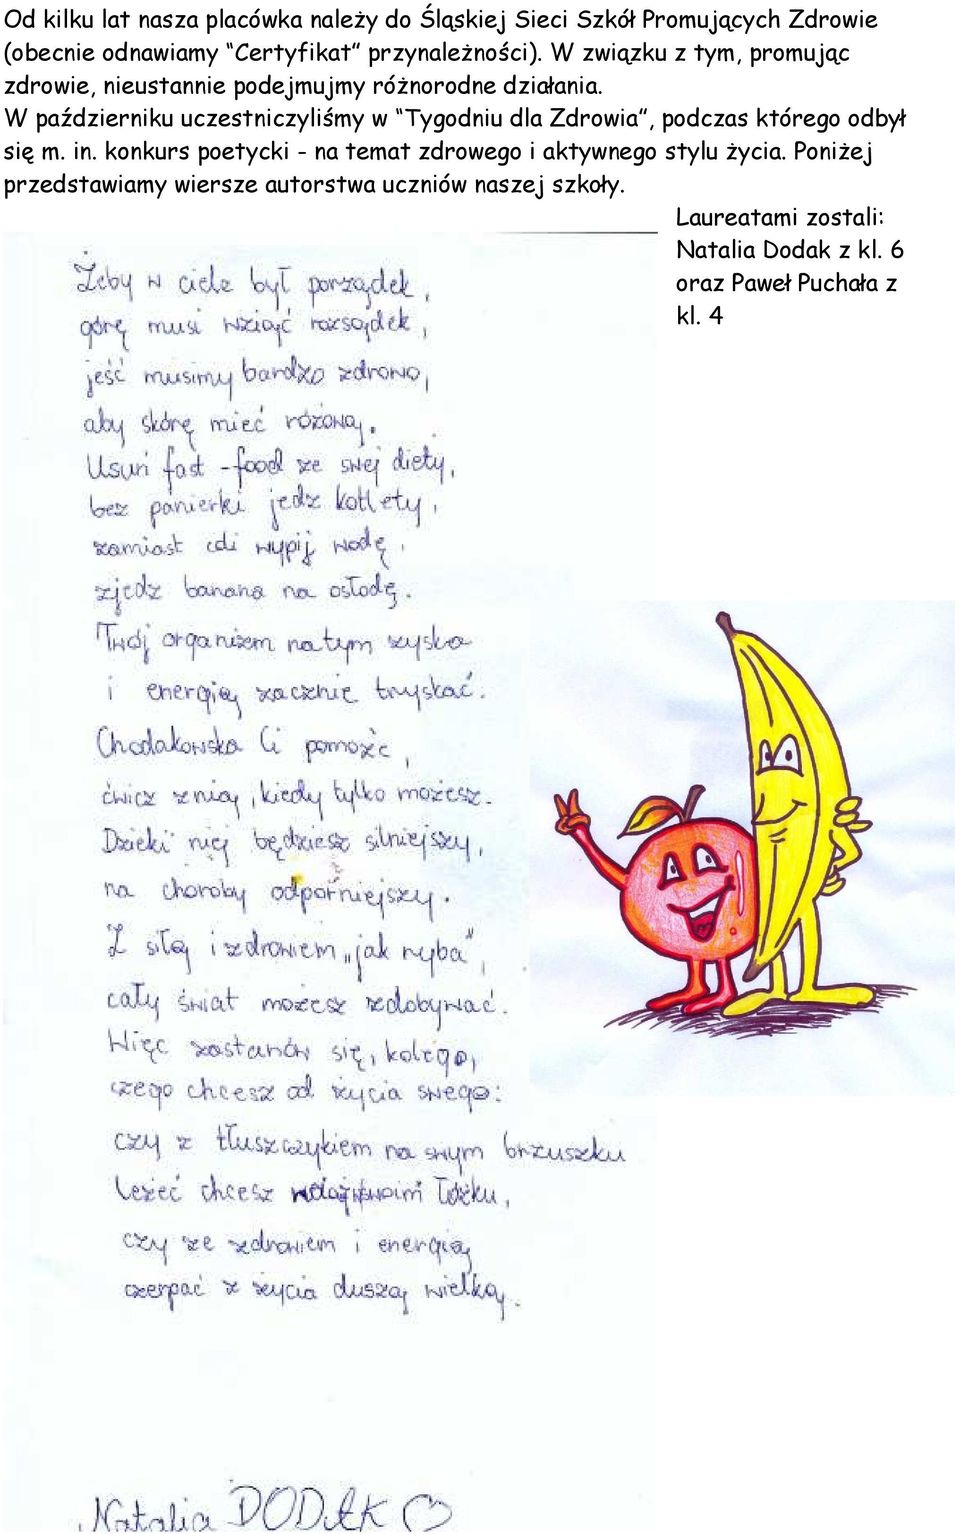 Od kilku lat nasza placówka należy do Śląskiej Sieci Szkół Promujących Zdrowie
(obecnie odnawiamy “Certyfikat” przynależności). W związku z tym, promując
zdrowie, nieustannie podejmujmy różnorodne działania.
W październiku uczestniczyliśmy w “Tygodniu dla Zdrowia”, podczas którego odbył
się m. in. konkurs poetycki - na temat zdrowego i aktywnego stylu życia. Poniżej
przedstawiamy wiersze autorstwa uczniów naszej szkoły.
Laureatami zostali:
Natalia Dodak z kl. 6
oraz Paweł Puchała z
kl. 4
Żeby w ciele był porządek,
górę musi wziąć rozsądek,
jeść musimy bardzo zdrowo,
aby skórę mieć różową.
Usuń fast-food ze swej diety,
bez panierki jedz kotlety,
zamiast coli wypij wodę,
zjedz banana na osłodę.
Twój organizm na tym zyska
i energią zacznie tryskać.
Chodakowska Ci pomoże,
ćwicz z nią, kiedy tylko możesz.
Dzięki niej będziesz silniejszy,
na choroby odporniejszy.
Z siłą i zdrowiem „jak ryba”,
cały świat możesz zdobywać.
Więc zastanów się, kolego,
czego chcesz od życia swego:
czy z tłuszczykiem na swym brzuszku
leżeć chcesz swoim łóżku,
czy ze zdrowiem i energią
czerpać z życia duszą wielką.
Natalia DODAK